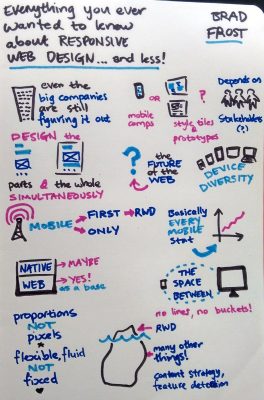 Everything you ever
wanted to know
about RESPONSIVE
WEB DESIGN... and less!
BRAD
FROST
even the
big companies
are still
figuring it out
OR
?
mobile
comps
style tiles
&
prototypes
Depends on
Stakeholders
(?)
DESIGN the
parts & the whole
SIMULTANEOUSLY
?
the
FUTURE
of the
WEB
DEVICE
DIVERSITY
MOBILE
FIRST → RWD
ONLY
Basically
EVERY
MOBILE
Stat
NATIVE
WEB
MAYBE
YES!
as a base
THE
SPACE
BETWEEN
no lines, no buckets!
proportions
NOT
pixels
flexible, fluid
NOT
fixed
RWD
many other
things!
content strategy,
feature detection